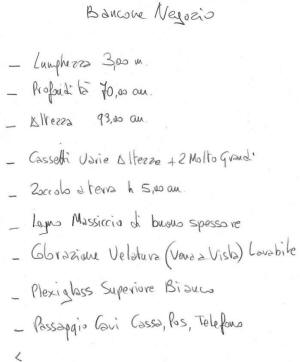 Bancone Negozio
– Lunghezza 3,00 m.
– Profondità 70,00 cm.
– Altezza 93,00 cm.
– Cassetti Varie Altezze + 2 Molto Grandi
– Zoccolo a terra h 5,00 cm.
– Legno Massiccio di buono spessore
– Colorazione Velatura (Vena a Vista) Lavabile
– Plexiglass Superiore Bianco
– Passaggio Cavi Cassa, Pos, Telefono